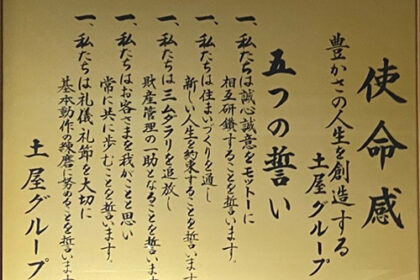 使命感
豊かさの人生を創造する
土屋グループ
五つの誓い
一、私たちは誠心誠意をモットーに
相互研鑚することを誓います。
一、私たちは住まいづくりを通し
新しい人生を約束することを誓います。
一、私たちは三ムダラリを追放し
財産管理の一助となることを誓います。
一、私たちはお客さまを我がことと思い
常に共に歩むことを誓います。
一、私たちは礼儀、礼節を大切に
基本動作の練磨に努めることを誓います。
土屋グループ